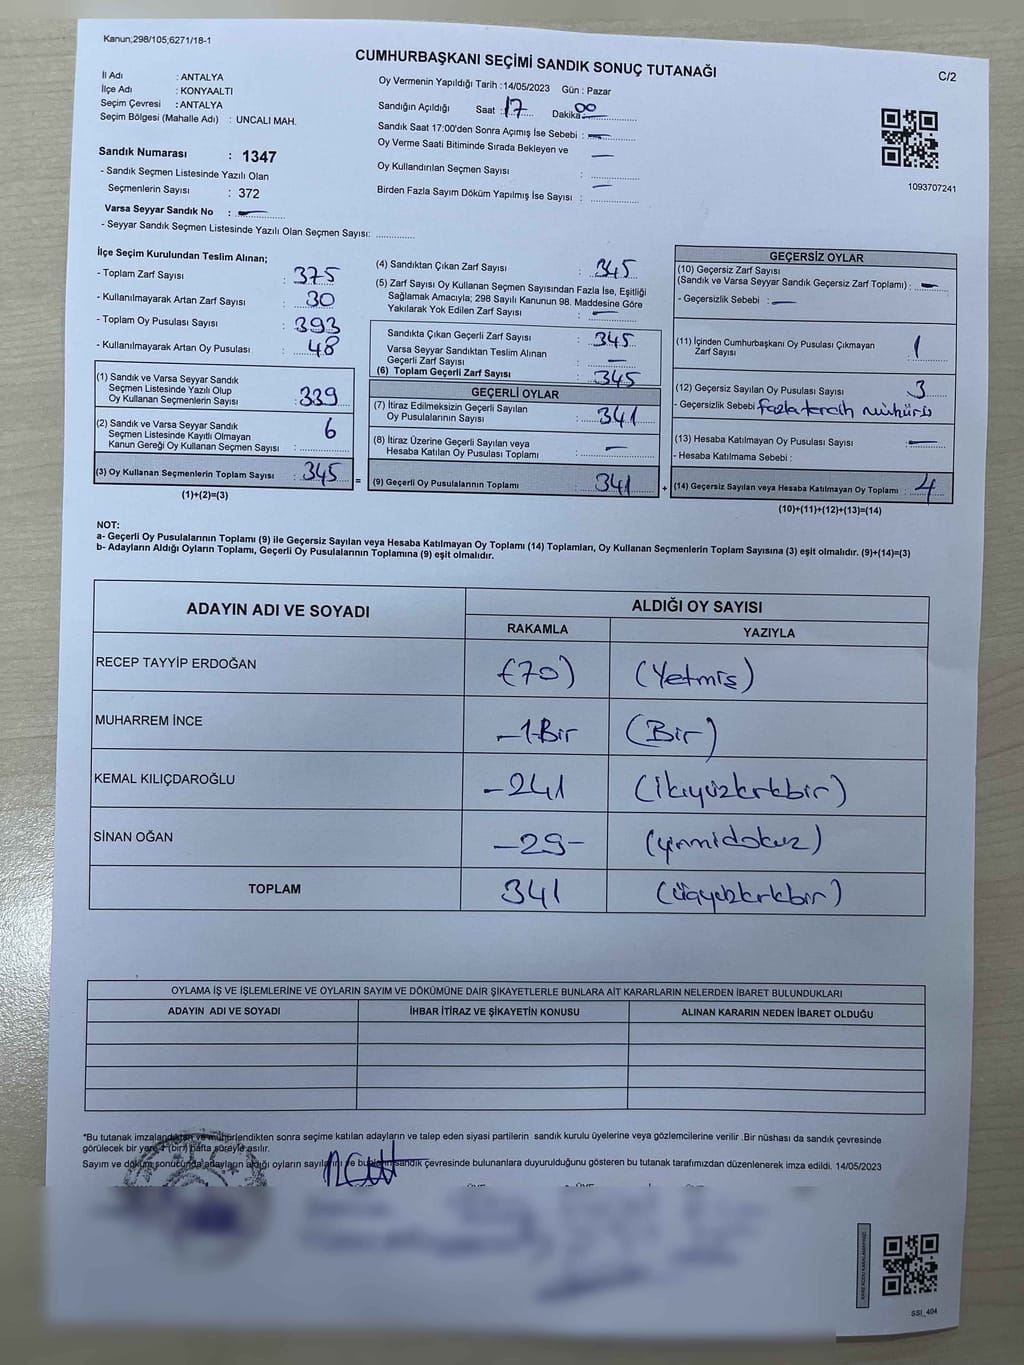 Kanun;298/105;6271/18-1
CUMHURBAŞKANI SEÇİMİ SANDIK SONUÇ TUTANAĞI
C/2
İl Adı : ANTALYA
İlçe Adı : KONYAALTI
Seçim Çevresi : ANTALYA
Seçim Bölgesi (Mahalle Adı) : UNCALI MAH.
Sandık Numarası : 1347
- Sandık Seçmen Listesinde Yazılı Olan
Seçmenlerin Sayısı : 372
Varsa Seyyar Sandık No : —
- Seyyar Sandık Seçmen Listesinde Yazılı Olan Seçmen Sayısı: ............
Oy Vermenin Yapıldığı Tarih : 14/05/2023 Gün : Pazar
Sandığın Açıldığı Saat : 17 Dakika 00
Sandık Saat 17:00'den Sonra Açımış İse Sebebi : —
Oy Verme Saati Bitiminde Sırada Bekleyen ve —
Oy Kullandırılan Seçmen Sayısı :
Birden Fazla Sayım Döküm Yapılmış İse Sayısı : —
1093707241
İlçe Seçim Kurulundan Teslim Alınan;
- Toplam Zarf Sayısı : 375
- Kullanılmayarak Artan Zarf Sayısı : 30
- Toplam Oy Pusulası Sayısı : 393
- Kullanılmayarak Artan Oy Pusulası : 48
(1) Sandık ve Varsa Seyyar Sandık
Seçmen Listesinde Yazılı Olup
Oy Kullanan Seçmenlerin Sayısı : 339
(2) Sandık ve Varsa Seyyar Sandık
Seçmen Listesinde Kayıtlı Olmayan
Kanun Gereği Oy Kullanan Seçmen Sayısı : 6
(3) Oy Kullanan Seçmenlerin Toplam Sayısı : 345 =
(1)+(2)=(3)
(4) Sandıktan Çıkan Zarf Sayısı : 345
(5) Zarf Sayısı Oy Kullanan Seçmen Sayısından Fazla İse, Eşitliği
Sağlamak Amacıyla; 298 Sayılı Kanunun 98. Maddesine Göre
Yakılarak Yok Edilen Zarf Sayısı : —
Sandıkta Çıkan Geçerli Zarf Sayısı : 345
Varsa Seyyar Sandıktan Teslim Alınan
Geçerli Zarf Sayısı : —
(6) Toplam Geçerli Zarf Sayısı : 345
GEÇERLİ OYLAR
(7) İtiraz Edilmeksizin Geçerli Sayılan
Oy Pusulalarının Sayısı : 341
(8) İtiraz Üzerine Geçerli Sayılan veya
Hesaba Katılan Oy Pusulası Toplamı : —
(9) Geçerli Oy Pusulalarının Toplamı : 341 +
GEÇERSİZ OYLAR
(10) Geçersiz Zarf Sayısı
(Sandık ve Varsa Seyyar Sandık Geçersiz Zarf Toplamı) : —
- Geçersizlik Sebebi : —
(11) İçinden Cumhurbaşkanı Oy Pusulası Çıkmayan
Zarf Sayısı : 1
(12) Geçersiz Sayılan Oy Pusulası Sayısı : 3
- Geçersizlik Sebebi fazla tercih mühürü
(13) Hesaba Katılmayan Oy Pusulası Sayısı : —
- Hesaba Katılmama Sebebi :
(14) Geçersiz Sayılan veya Hesaba Katılmayan Oy Toplamı : 4
(10)+(11)+(12)+(13)=(14)
NOT:
a- Geçerli Oy Pusulalarının Toplamı (9) ile Geçersiz Sayılan veya Hesaba Katılmayan Oy Toplamı (14) Toplamları, Oy Kullanan Seçmenlerin Toplam Sayısına (3) eşit olmalıdır. (9)+(14)=(3)
b- Adayların Aldığı Oyların Toplamı, Geçerli Oy Pusulalarının Toplamına (9) eşit olmalıdır.
ADAYIN ADI VE SOYADI
ALDIĞI OY SAYISI
RAKAMLA YAZIYLA
RECEP TAYYİP ERDOĞAN (70) (Yetmiş)
MUHARREM İNCE -1-Bir (Bir)
KEMAL KILIÇDAROĞLU -241 (ikiyüzkırkbir)
SİNAN OĞAN -29- (yirmidokuz)
TOPLAM 341 (üçyüzkırkbir)
OYLAMA İŞ VE İŞLEMLERİNE VE OYLARIN SAYIM VE DÖKÜMÜNE DAİR ŞİKAYETLERLE BUNLARA AİT KARARLARIN NELERDEN İBARET BULUNDUKLARI
ADAYIN ADI VE SOYADI İHBAR İTİRAZ VE ŞİKAYETİN KONUSU ALINAN KARARIN NEDEN İBARET OLDUĞU
*Bu tutanak imzalandıktan ve mühürlendikten sonra seçime katılan adayların ve talep eden siyasi partilerin sandık kurulu üyelerine veya gözlemcilerine verilir .Bir nüshası da sandık çevresinde
görülecek bir yere 1 (bir) hafta süreyle asılır.
Sayım ve döküm sonucunda adayların aldığı oyların sayılarını ve bunların sandık çevresinde bulunanlara duyurulduğunu gösteren bu tutanak tarafımızdan düzenlenerek imza edildi. 14/05/2023
SSI_404